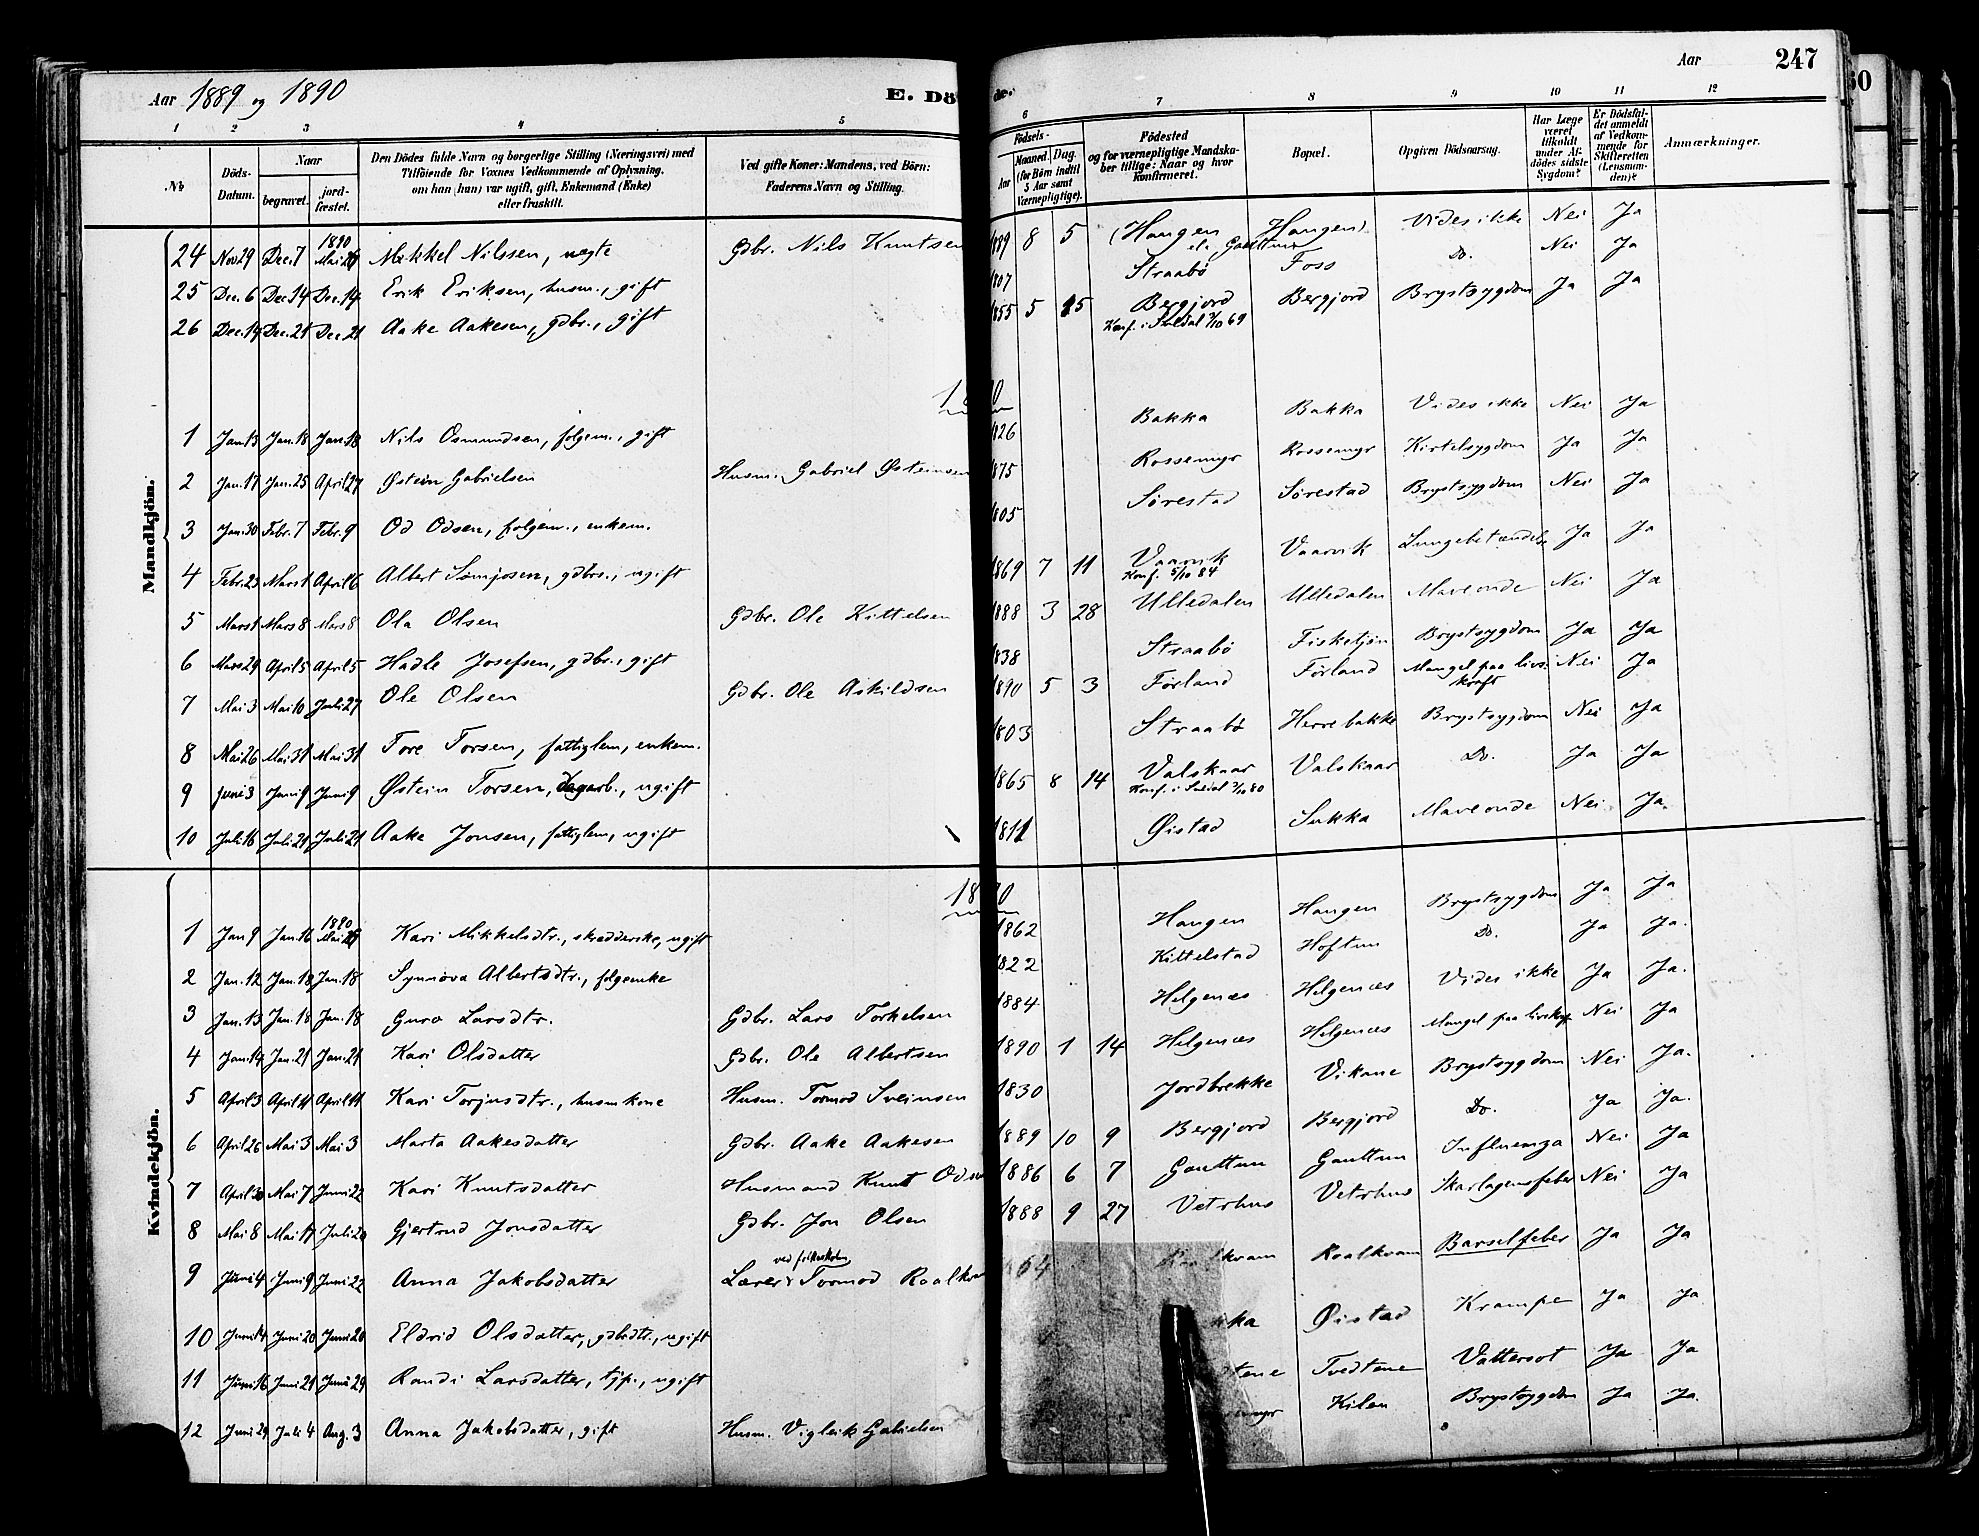 Aar 1889 og 1890
E. Dö
de.
Aar
247
1 2 3 4 5 6 7 8 9 10 11 12
No
Döds-Datum.
Naar
begravet.
jord-fæstet.
Den Dödes fulde Navn og borgerlige Stilling (Næringsvei) med
Tilföiende for Voxnes Vedkommende af Oplysning,
om han (hun) var ugift, gift, Enkemand (Enke)
eller fraskilt.
Ved gifte Koner: Mandens, ved Börn:
Faderens Navn og Stilling.
Födsels-
Aar
Maaned. Dag.
(for Börn indtil
5 Aar samt
Værnepligtige).
Födested
og for værnepligtige Mandska-
ber tillige: Naar og hvor
konfirmeret.
Bopæl.
Opgiven Dödsaarsag.
Har Læge
været
tilkaldt
under Af-
dödes sidste
Sygdom?
Er Dödsfal-
det anmeldt
af Vedkom-
mende for
Skifteretten
(Lensman-
den)?
Anmærkninger.
Mandkjön.
24 Nov 29 Dec. 7 1890 Mai 26 Mikkel Nilssen, uegte Gdbr. Nils Knutsen 1889 8 5 (Haugen el. Gauttun Haugen) Vides ikke Nei Ja
25 Dec. 6 Dec. 14 Dec. 14 Erik Eriksen, husm., gift 1807 Straabø Foss Do. Nei Ja
26 Dec. 14 Dec. 21 Dec. 21 Aake Aakesen, gdbr., gift 1855 5 15 Bergjord Bergjord Brystsygdom Ja Ja
Konf. i Suldal 3/10 69
1890
1 Jan. 13 Jan. 18 Jan. 18 Nils Osmundsen, følgem., gift 1826 Bakka Bakka Vides ikke Nei Ja
2 Jan. 17 Jan. 25 April 27 Østein Gabrielsen Husm. Gabriel Østeinsen 1875 Rossemyr Rossemyr Kirtelsygdom Ja Ja
3 Jan. 30 Febr. 7 Febr. 9 Od Odsen, følgem., enkem. 1805 Sørestad Sørestad Brystsygdom Nei Ja
4 Febr. 23 Mars 1 April 6 Albert Sømjosen, gdbrs., ugift 1869 7 11 Vaarvik Vaarvik Lungebetændelse Ja Ja
Konf. 5/10 84
5 Mars 1 Mars 8 Mars 8 Ola Olsen Gdbr. Ole Kittelsen 1888 3 28 Ulledalen Ulledalen Maveonde Nei Ja
6 Mars 29 April 5 April 5 Hadle Josefsen, gdbr., gift 1838 Straabø Fisketjøn Brystsygdom Ja Ja
7 Mai 3 Mai 10 Juli 27 Ole Olsen Gdbr. Ole Askildsen 1890 5 3 Førland Førland Mangel paa livs-kraft Nei Ja
8 Mai 26 Mai 31 Mai 31 Tore Torsen, fattiglem, enkem. 1803 Straabø Herrebakke Brystsygdom Nei Ja
9 Juni 3 Juni 9 Juni 9 Østein Torsen, dagarb., ugift 1865 8 14 Valskaar Valskaar Do. Ja Ja
Konf. i Suldal 3/10 80
10 Juli 16 Juli 21 Juli 21 Aake Jonsen, fattiglem, ugift 1811 Øistad Sukka Maveonde Nei Ja
Kvindekjön.
1890
1 Jan. 9 Jan. 16 1890 Mai Kari Mikkelsdtr., skrædderske, ugift 1862 Haugen Haugen Brystsygdom Ja Ja
2 Jan. 12 Jan. 18 Jan. 18 Synnøva Albertsdtr., følgeenke 1822 Kittelstad Hoftun Do. Ja Ja.
3 Jan. 13 Jan. 18 Jan. 18 Guro Larsdtr. Gdbr. Lars Torkelsen 1884 Helgenæs Helgenæs Vides ikke Ja Ja.
4 Jan. 14 Jan. 21 Jan. 21 Kari Olsdatter Gdbr. Ole Albertsen 1890 1 14 Helgenæs Helgenæs Mangel paa livskr. Nei Ja
5 April 3 April 11 April 11 Kari Torjusdtr., husmkone Husm. Tormod Sveinsen 1830 Jordbrekke Vikane Brystsygdom Nei Ja.
6 April 26 Mai 3 Mai 3 Marta Aakesdatter Gdbr. Aake Aakesen 1889 10 9 Bergjord Bergjord Do. Ja Ja.
7 April 30 Mai 7 Juni 22 Kari Knutsdatter Husmand Knut Odsen 1886 6 7 Gauttun Gauttun Influenza Nei Ja
8 Mai 8 Mai 17 Juli 20 Gjertrud Jonsdatter Gdbr. Jon Olsen 1888 9 27 Vetrhus Vetrhus Skarlagensfeber Nei Ja
9 Juni 4 Juni 9 Juni 22 Anna Jakobsdatter Lærer ved folkeskolen Tormod Roalkvam 64 Roalkvam Roalkvam Barselfeber Ja Ja
10 Juni 14 Juni 20 Juni 20 Eldrid Olsdatter, gdbdtr., ugift kka Øistad Krampe Ja Ja
11 Juni 16 Juni 21 Juni 29 Randi Larsdatter, tjp., ugift dtene Tvedtene Vattersot Ja Ja
12 Juni 29 Juli 4 Aug. 3 Anna Jakobsdatter, gift Husm. Vigleik Gabrielsen myr Kilen Brystsygdom Ja Ja.